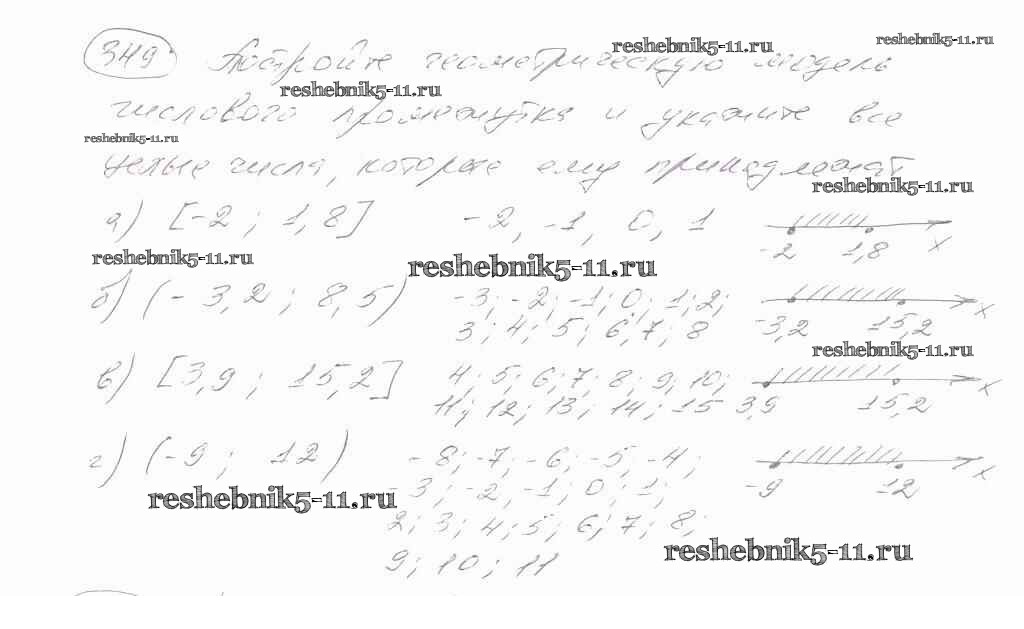 349 Постройте геометрическую модель
reshebnik5-11.ru
reshebnik5-11.ru
reshebnik5-11.ru
числового промежутка и укажите все
reshebnik5-11.ru
целые числа, которые ему принадлежат
reshebnik5-11.ru
а) [-2 ; 1,8] -2, -1, 0, 1 -2 1,8 x
reshebnik5-11.ru
reshebnik5-11.ru
б) (-3,2 ; 8,5) -3; -2; -1; 0; 1; 2; x
3; 4; 5; 6; 7; 8 -3,2 15,2
reshebnik5-11.ru
в) [3,9 ; 15,2] 4; 5; 6; 7; 8; 9; 10; x
11; 12; 13; 14; 15 3,9 15,2
г) (-9 ; 12) -8; -7; -6; -5; -4; x
reshebnik5-11.ru
-3; -2, -1; 0; 1; -9 12
2; 3; 4; 5; 6; 7; 8;
reshebnik5-11.ru
9; 10; 11